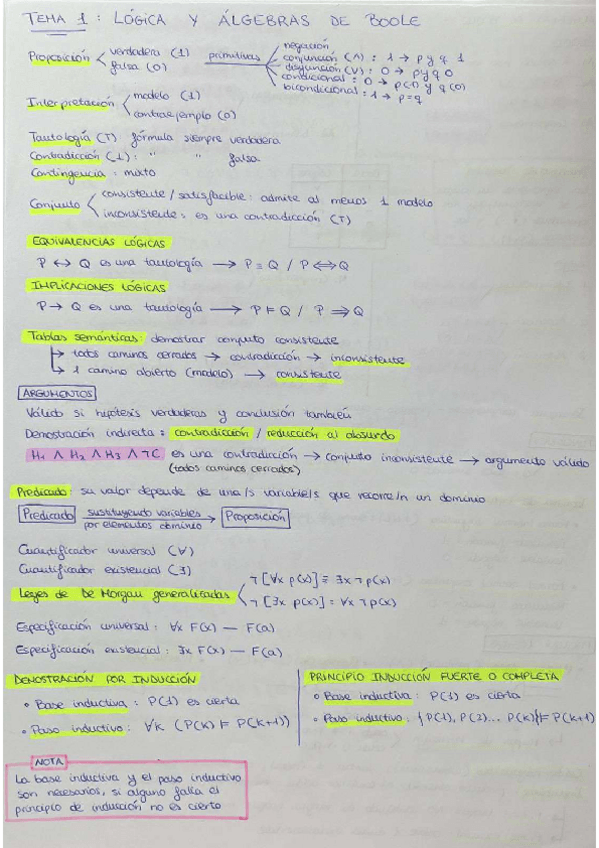 TEMA 1 : LÓGICA Y ÁLGEBRAS DE BOOLE
Proposición < verdadera (1) falsa (0) primitivas
negación
conjunción (∧) : 1 → p y q 1
disyunción (∨) : 0 → p y q 0
condicional : 0 → p(1) y q(0)
bicondicional : 1 → p=q
Interpretación < modelo (1)
contraejemplo (0)
Tautología (T) fórmula siempre verdadera
Contradicción (⊥) : " " falsa
Contingencia : mixto
Conjunto < consistente / satisfacible : admite al menos 1 modelo
inconsistente : es una contradicción (T)
EQUIVALENCIAS LÓGICAS
P ↔ Q es una tautología → P ≡ Q / P ⟺ Q
IMPLICACIONES LÓGICAS
P → Q es una tautología → P ⊨ Q / P ⇒ Q
Tablas semánticas : demostrar conjunto consistente
↳ todos caminos cerrados → contradicción → inconsistente
↳ 1 camino abierto (modelo) → consistente
ARGUMENTOS
Válido si hipótesis verdaderas y conclusión también
Demostración indirecta : contradicción / reducción al absurdo
H₁ ∧ H₂ ∧ H₃ ∧ ¬C es una contradicción → conjunto inconsistente → argumento válido
(todos caminos cerrados)
Predicado : su valor depende de una/s variable/s que recorre/n un dominio
Predicado sustituyendo variables por elementos dominio → Proposición
Cuantificador universal (∀)
Cuantificador existencial (∃)
Leyes de De Morgan generalizadas < ¬[∀x p(x)] ≡ ∃x ¬p(x)
¬[∃x p(x)] ≡ ∀x ¬p(x)
Especificación universal : ∀x F(x) — F(a)
Especificación existencial : ∃x F(x) — F(a)
DEMOSTRACIÓN POR INDUCCIÓN
∘ Base inductiva : P(1) es cierta
∘ Paso inductivo : ∀k (P(k) ⊨ P(k+1))
PRINCIPIO INDUCCIÓN FUERTE O COMPLETA
∘ Base inductiva : P(1) es cierta
∘ Paso inductivo : {P(1), P(2)... P(k)} ⊨ P(k+1)
NOTA
La base inductiva y el paso inductivo
son necesarios, si alguno falla el
principio de inducción no es cierto